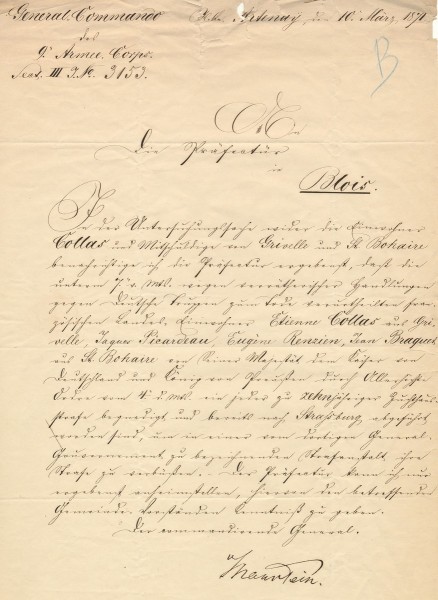 General-Commando
des
9. Armee-Corps.
Sect. III J.No. 3153.
Artenay, den 10. März, 1871
B
An
Die Präfectur
in
Blois.
In der Untersuchungssache wider die Einwohner
Collas und Mitschuldige von Grivelle und St. Bohaire
benachrichtige ich die Präfectur ergebenst, daß die
unterm 7. v. Mts. wegen verrätherischer Handlungen
gegen Deutsche Truppen zum Tode verurtheilten fran-
zösischen Landes-Einwohner Etienne Collas aus Gri-
velle, Jaques Picardeau, Eugène Renzien, Jean Braquet
aus St. Bohaire von Seiner Majestät dem Kaiser von
Deutschland und König von Preußen durch Allerhöchste
Ordre vom 4. d. Mts. ein jeder zu zehnjähriger Zuchthaus-
strafe begnadigt und bereits nach Straßburg abgeführt
worden sind, um in einer vom dortigen General-
Gouvernement zu bezeichnenden Strafanstalt ihre
Strafe zu verbüßen. Der Präfectur kann ich nur
ergebenst anheimstellen, hiervon den betreffenden
Gemeinde-Vorständen Kenntniß zu geben.
Der commandirende General.
v Manstein.